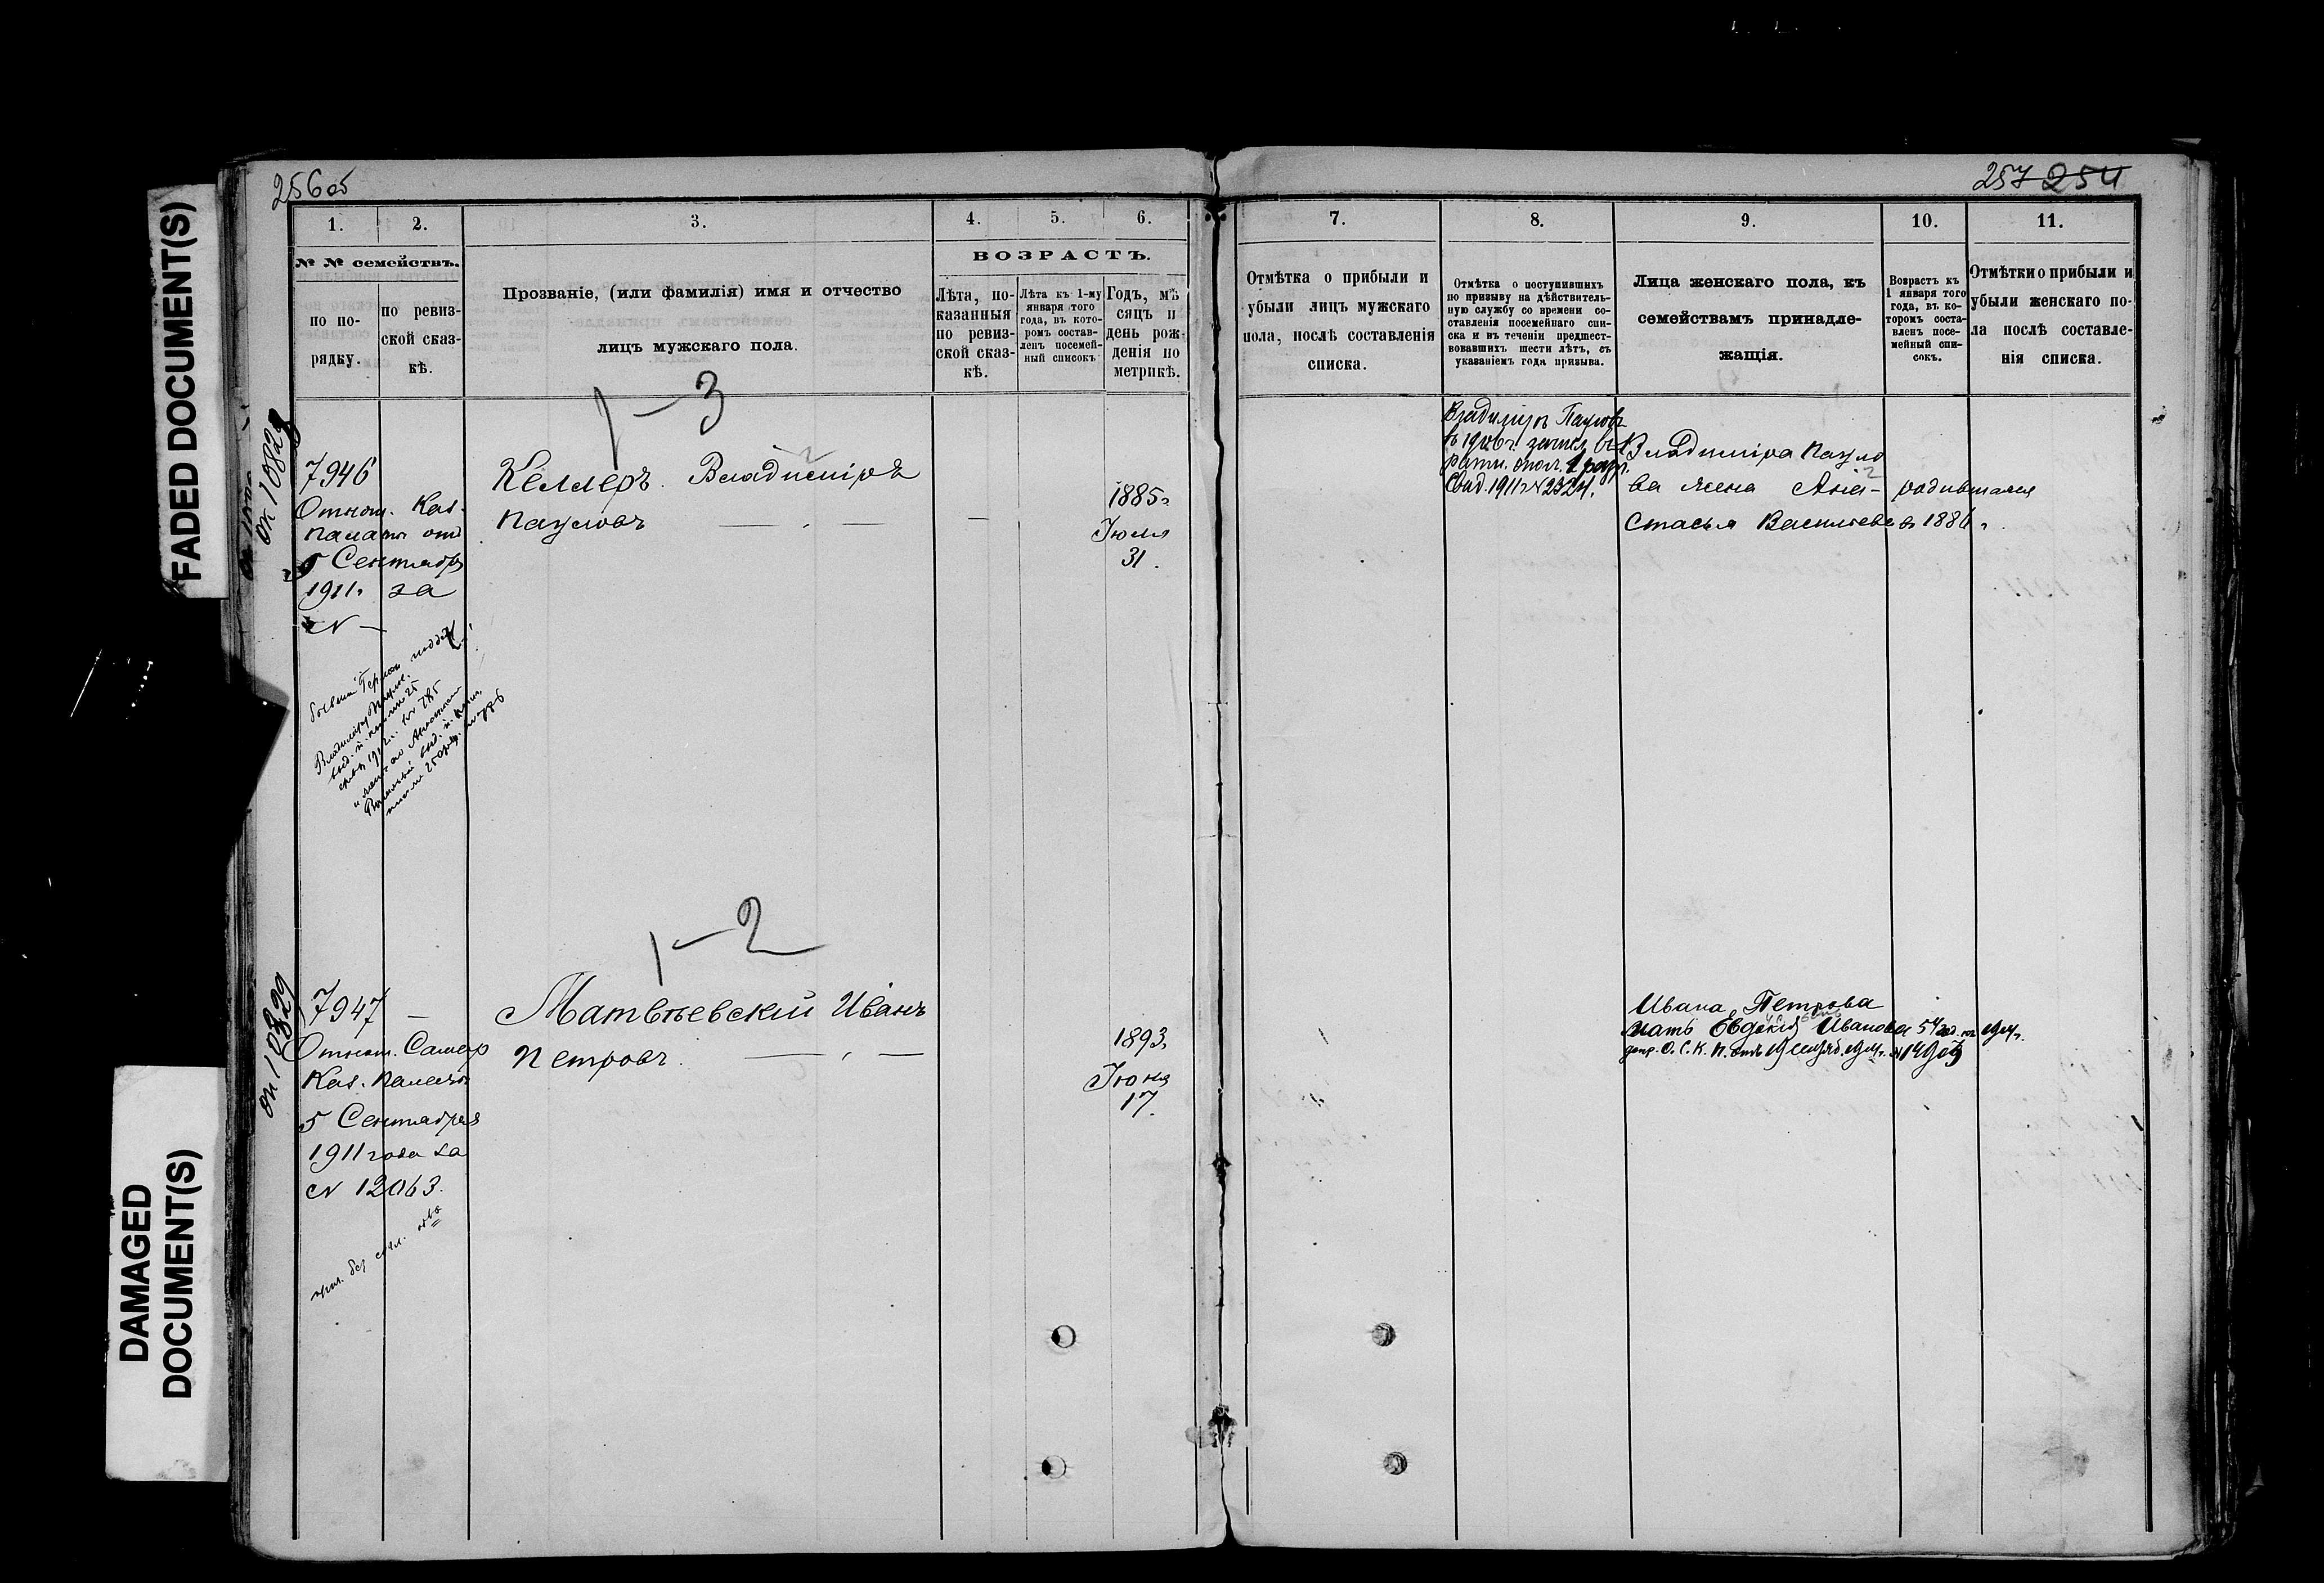 FADED DOCUMENT(S)
DAMAGED
DOCUMENT(S)
256об
257 254
1. 2. 3. 4. 5. 6.
№ № семействъ.
по по-
рядку.
по ревиз-
ской сказ-
кѣ.
Прозваніе, (или фамилія) имя и отчество
лицъ мужскаго пола.
ВОЗРАСТЪ.
Лѣта, по-
казанныя
по ревиз-
ской сказ-
кѣ.
Лѣта къ 1-му
января того
года, въ кото-
ромъ состав-
ленъ посемей-
ный списокъ
Годъ, мѣ
сяцъ и
день рож-
денія по
метрикѣ.
1-3
7946
Относ. Каз.
Палаты отъ
5 Сентября
1911г. за
№ —
Келлеръ Владиміръ
Пауловъ
1885г.
Іюля
31.
1-2
7947 —
Относ. Самар
Каз. Палаты
5 Сентября
1911 года за
№ 12063.
Матвѣевскій Иванъ
Петровъ
1893.
Іюня
17.
7. 8. 9. 10. 11.
Отмѣтка о прибыли и
убыли лицъ мужскаго
пола, послѣ составленія
списка.
Отмѣтка о поступившихъ
по призыву на дѣйствитель-
ную службу со времени со-
ставленія посемейнаго спи-
ска и въ теченіи предшест-
вовавшихъ шести лѣтъ, съ
указаніемъ года призыва.
Лица женскаго пола, къ
семействамъ принадле-
жащія.
Возрастъ къ
1 января того
года, въ ко-
торомъ соста-
вленъ посе-
мейный спи-
сокъ.
Отмѣтки о прибыли и
убыли женскаго по-
ла послѣ составле-
нія списка.
Владиміръ Пауловъ
в 1906г. зачисл. въ
ратн. опол. 1 разр.
Свид. 1911г № 2324.
Владиміра Пауло
ва жена Ана- родившаяся
стасья Васильева в 1886 г.
Ивана Петрова
мать Евдокія Иванова 54